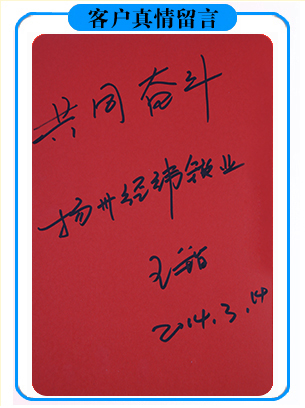 客户真情留言
共同奋斗
扬州经纬锁业
2014.3.14